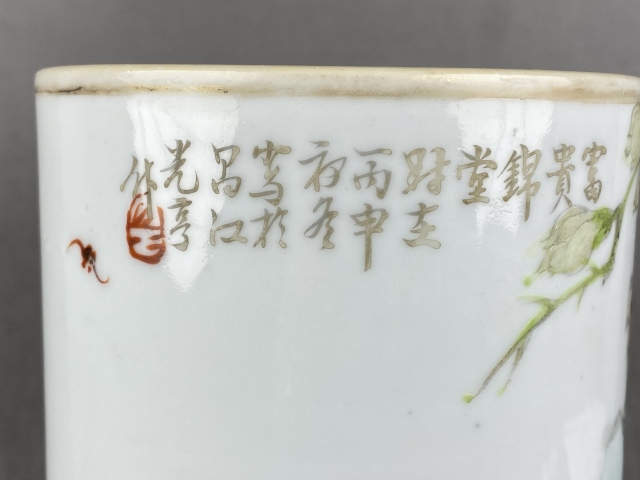 富
貴
錦
堂
时在
丙申
初冬
寫於
昌江
光亨
作